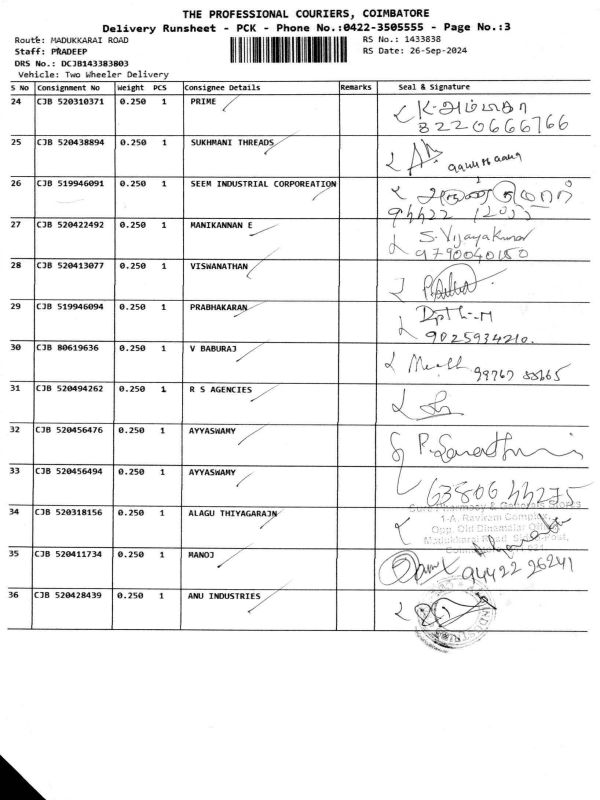 THE PROFESSIONAL COURIERS, COIMBATORE
Delivery Runsheet - PCK - Phone No.:0422-3505555 - Page No.:3
Route: MADUKKARAI ROAD RS No.: 1433838
Staff: PRADEEP RS Date: 26-Sep-2024
DRS No.: DCJB143383803
Vehicle: Two Wheeler Delivery
S No Consignment No Weight PCS Consignee Details Remarks Seal & Signature
24 CJB 520310371 0.250 1 PRIME K-அம்பிகா
8220666766
25 CJB 520438894 0.250 1 SUKHMANI THREADS
26 CJB 519946091 0.250 1 SEEM INDUSTRIAL CORPOREATION
27 CJB 520422492 0.250 1 MANIKANNAN E S. Vijayakumar
9790040150
28 CJB 520413077 0.250 1 VISWANATHAN
29 CJB 519946094 0.250 1 PRABHAKARAN
9025934210.
30 CJB 80619636 0.250 1 V BABURAJ
31 CJB 520494262 0.250 1 R S AGENCIES
32 CJB 520456476 0.250 1 AYYASWAMY
33 CJB 520456494 0.250 1 AYYASWAMY 63806 44275
34 CJB 520318156 0.250 1 ALAGU THIYAGARAJN
1-A, Raviram Complex
Opp. Old Dinamalar Office
Madukkarai Road
35 CJB 520411734 0.250 1 MANOJ 94422 26241
36 CJB 520428439 0.250 1 ANU INDUSTRIES